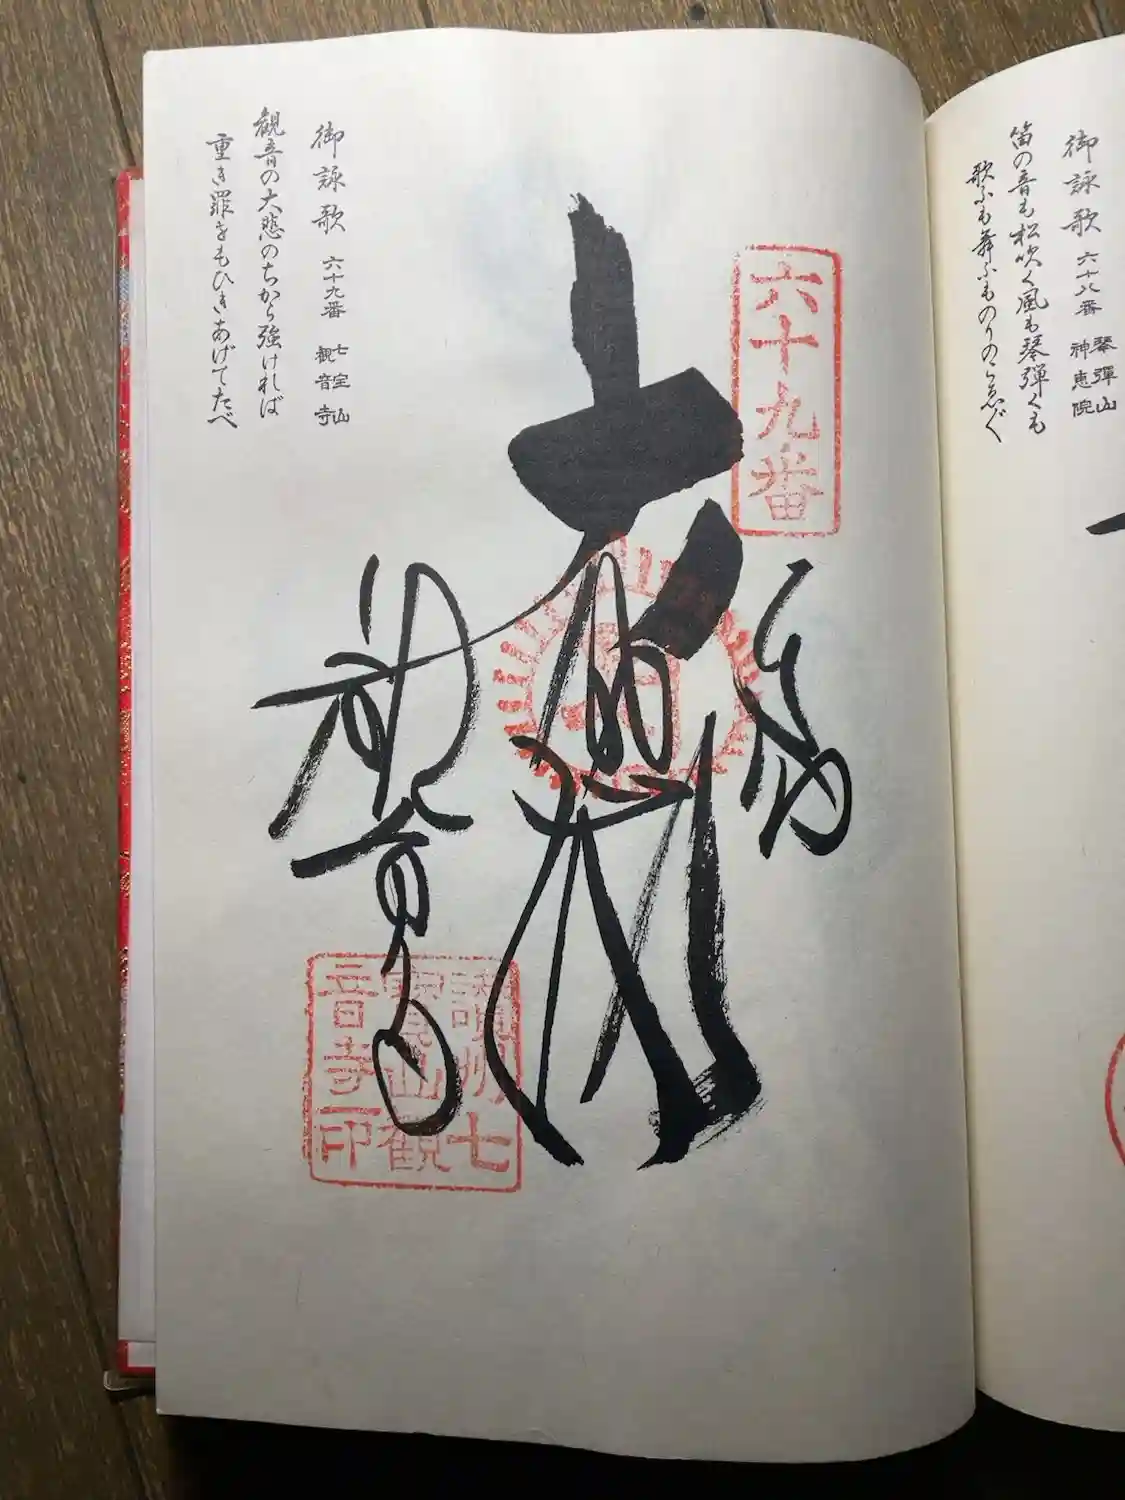 笛の音も松吹く風も琴弾くも
歌ふも舞ふものりのこゑぐ
御詠歌 六十八番 琴弾山
神恵院
六十九番
御詠歌 六十九番 七宝山
観音寺
観音の大悲のちから強ければ
重き罪をもひきあげてたべ
奉納
観音寺
讃州七
宝山観
音寺印